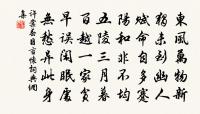 東風萬物新
獨未到幽人
賦命自多蹇
陽和非不均
五陵三月暮
百越一家貧
早誤閑眠處
無愁异此身
許棠春日言懷詞典網
集